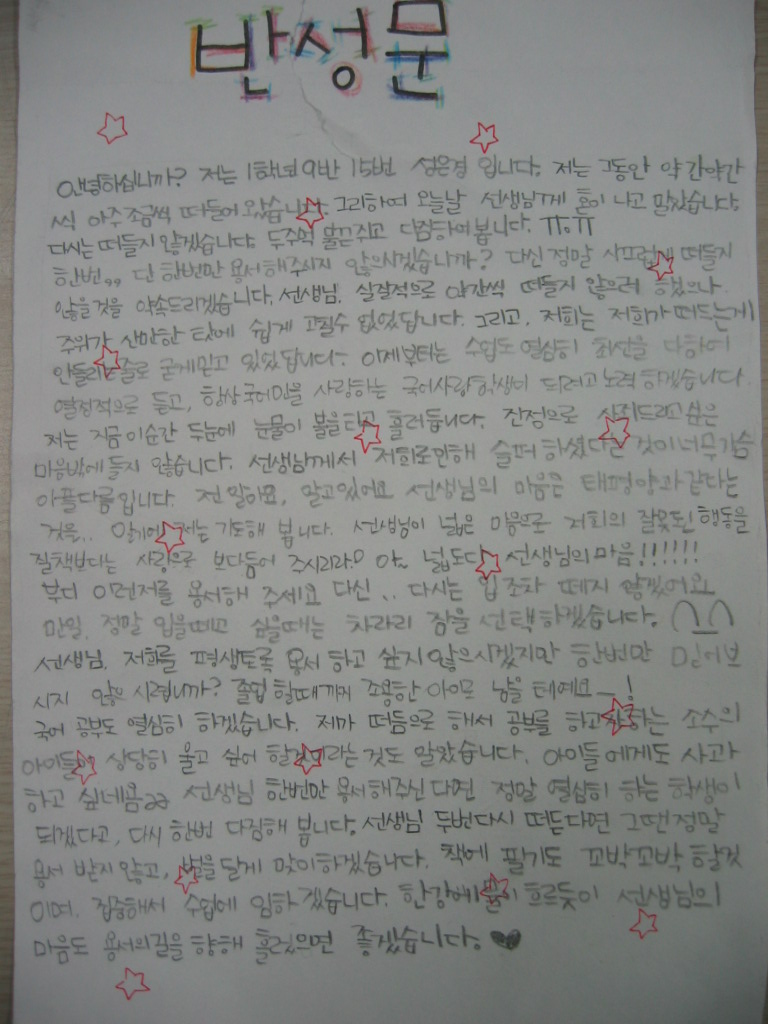 반성문
안녕하십니까? 저는 1학년 9반 15번 성은경 입니다. 저는 그동안 약간약간
씩 아주 조금씩 떠들어 왔습니다. 그리하여 오늘날 선생님께 혼이 나고 말았습니다.
다시는 떠들지 않겠습니다. 두주먹 불끈쥐고 다짐하여 봅니다. ㅠ.ㅠ
한번,, 단 한번만 용서해주시지 않으시겠습니까? 다신 정말 시끄럽게 떠들지
않을것을 약속드리겠습니다, 선생님. 실질적으로 약간씩 떠들지 않으려 했으나
주위가 산만한 탓에 쉽게 고칠수 없었답니다. 그리고, 저희는 저희가 떠드는게
안들리는줄로 굳게믿고 있었답니다. 이제부터는 수업도 열심히 최선을 다하여
열정적으로 듣고, 항상 국어만을 사랑하는 국어사랑 학생이 되려고 노력 하겠습니다.
저는 지금 이순간 두눈에 눈물이 볼을타고 흘러듭니다. 진정으로 사죄드리고 싶은
마음밖에 들지 않습니다. 선생님께서 저희로인해 슬퍼 하셨다는 것이 너무 가슴
아플다름입니다. 전 말이죠, 알고있어요 선생님의 마음은 태평양과 같다는
것을.. 알기에 저는 기도해 봅니다. 선생님이 넓은 마음으로 저희의 잘못된 행동을
질책보다는 사랑으로 보다듬어 주시리라고 아~ 넓도다 선생님의 마음!!!!!!
부디 이먼저를 용서해 주세요 다신.. 다시는 입조차 떼지 않겠어요
만일, 정말 입을떼고 싶을때는 차라리 잠을 선택하겠습니다. ∩_∩
선생님, 저희를 평생토록 용서 하고 싶지 않으시겠지만 한번만 믿어보
시지 않으시렵니까? 졸업 할때까지 조용한 아이로 남을 테예요—!
국어 공부도 열심히 하겠습니다. 제가 떠듬으로 해서 공부를 하고자하는 소수의
아이들이 상당히 울고 싶어 할것이라는 것도 알았습니다. 아이들에게도 사과
하고 싶네욤 선생님 한번만 용서해주신 다면 정말 열심히 하는 학생이
되겠다고, 다시 한번 다짐해 봅니다. 선생님 두번다시 떠든다면 그땐 정말
용서 받지 않고, 벌을 달게 맞이하겠습니다. 책에 필기도 꼬박꼬박 할것
이며, 집중해서 수업에 임하겠습니다. 한강에 물이 흐르듯이 선생님의
마음도 용서의길을 향해 흘렀으면 좋겠습니다. ♥